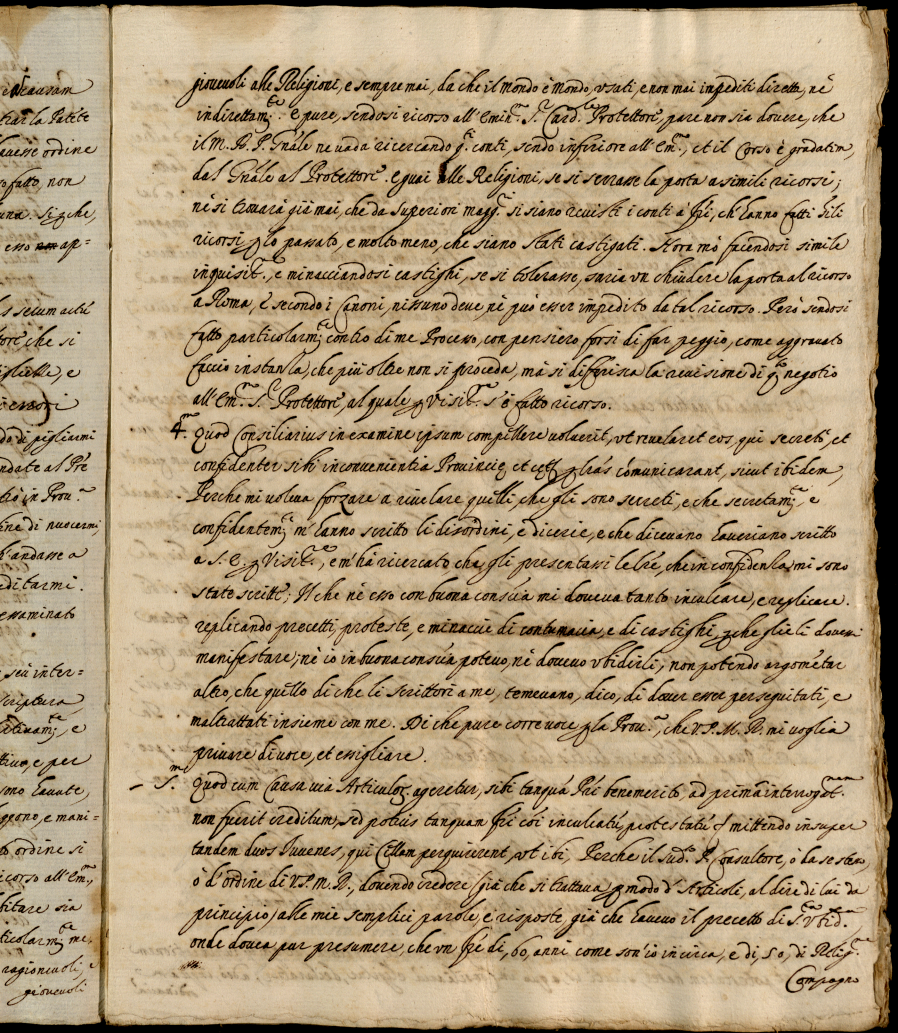 e Neausam
trar la Patite
hauesse ordine
fatto, non
una. Si che,
esso ap=
secum actu
tore che si
e
errori
do di pigliarmi
ndate al Pre
in Prou.ª
fine di nuocermi
h'andasse a
editarmi.
essaminato
seù inter=
scriptura
e
e per
sono hauute,
e mani=
ordine si
icorso all'Em.º
bitare sia
ticolarm.te me,
ragioneuoli,
gioueuoli
gioueuoli alle Religioni, e sempre mai, da che il mondo è mondo, usati, e non mai impediti dirette, nè
indirettam.te. E pure, sendosi ricorso all'Emin.mo S.r Card.le Protettore, pare non sia douere, che
il M. R. P. Gñale ne uada ricercando q.sti conti, sendo inferiore all'Em.mo, et il Corso è gradatim,
dal Gñale al Protettore. e guai alle Religioni, se si serrasse la porta a simili ricorsi;
nè si trouarà già mai, che da Superiori magg.ri si siano reuisti i conti a' fri, ch'hanno fatti sili
ricorsi p lo passato, e molto meno, che siano stati castigati. Hora mò facendosi simile
inquisit.ne, e minacciandosi castighi, se si tolerasse, saria un chiudere la porta al ricorso
a Roma, e secondo i Canoni, nissuno deue, nè può esser impedito da tal ricorso. Però sendosi
fatto particolarm.te contro di me Processo, con pensiero forsi di far peggio, come aggrauato
faccio instanza, che più oltre non si proceda, mà si differisca la reuisione di q.sto negotio
all'Em.mo S.r Protettore, al quale p Visit.ne s'è fatto ricorso.
4.m Quod Consiliarius in examine ipsum compellere uoluerit, ut reuelaret eos, qui secretè, et
confidenter sibi inconuenientia Prouincie, et p lras comunicarant, sicut ibidem,
Perche mi voleua forzare a riuelare quelli, che gli sono secreti, e che secretam.te, e
confidentem.te m'hanno scritto li disordini, e dicerie, e che diceuano haueriano scritto
a S. E. p Visit.ne, e m'hà ricercato che gli presentassi le lre, che in confidenza mi sono
state scritte; Il che nè esso con buona consc͠ia mi doueua tanto inculcare, e replicare.
replicando precetti, proteste, e minacie di contumacia, e di castighi, p che glieli douessi
manifestare; nè io in buona consc͠ia poteuo, nè doueuo ubidirli, non potendo argometar
altro, che quello di che li scrittori a me, temeuano, dico, di douer esser perseguitati, e
maltrattati insieme con me. Di che pure corre uoce p la Prou.ª, che V. P. M. R. mi uoglia
priuare di uoce, et essigliare.
- 5.m Quod cum Causa uia Articulor. ageretur, sibi tanquà Pri benemerito, ad primã interrogat.nem
non fuerit creditum, sed potius tanquam fri cõi inculcatù, protestatù q mittendo insuper
tandem duos Iuuenes, qui Cellam perquirerent, ut ibi, Perche il sud.to P. Consultore, ò da se stesso
ò d'ordine di V. P. M. R., douendo credere (già che si trattaua p modo d'Articoli, al dire di lui da
principio) alle mie semplici parole, e risposte, già che haueuo il precetto di S.ta Ubid.za
onde douea pur presumere, che un fre di, 60, anni come son'io in circa, e di, 50, di Relig.ne
Compagno